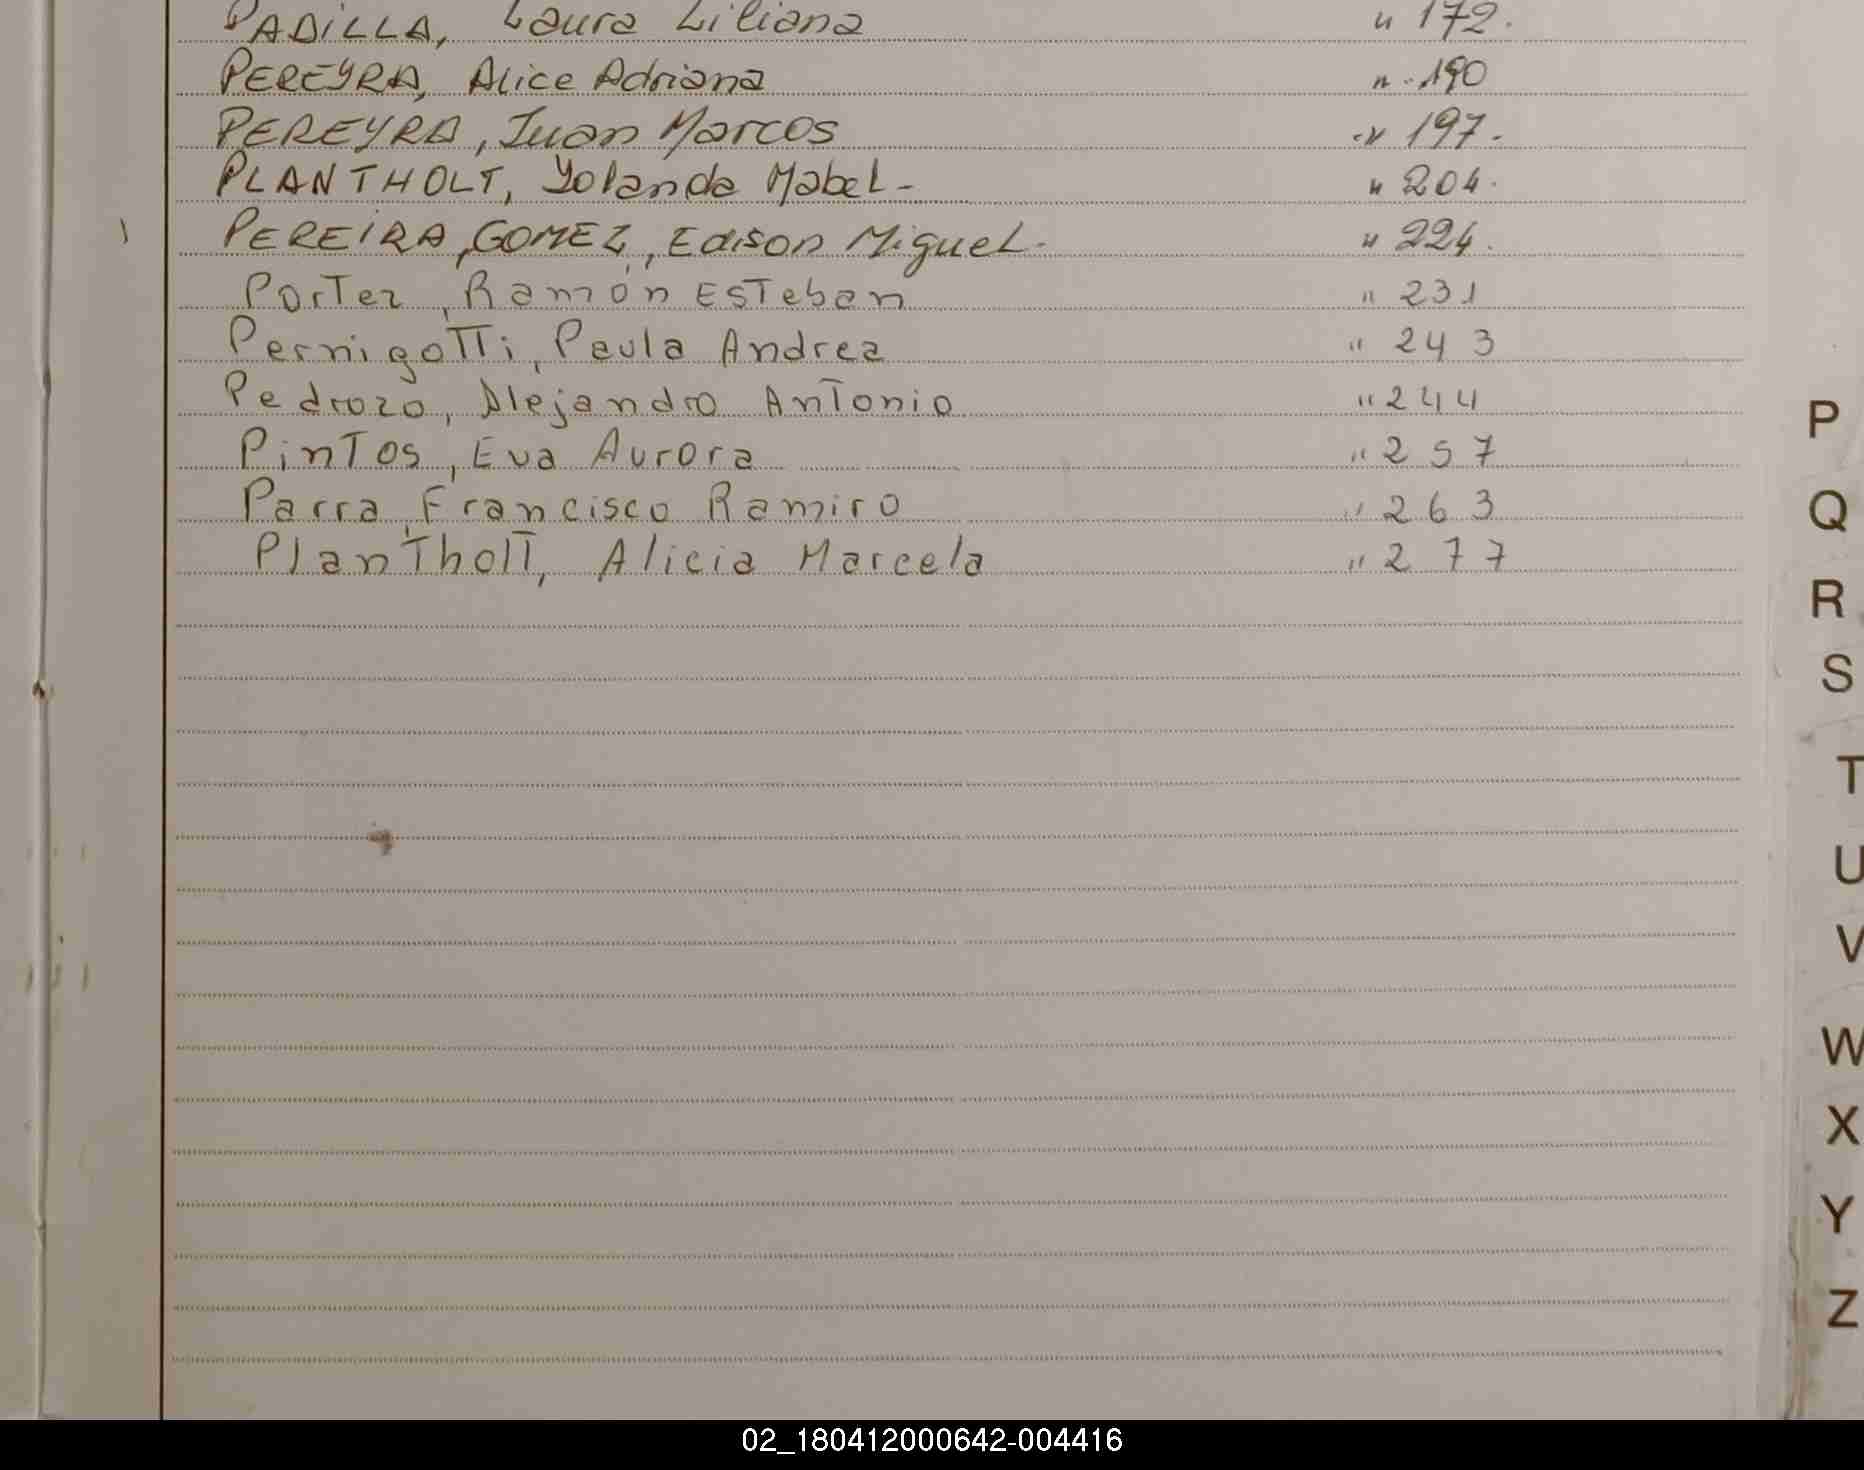 PADILLA, Laura Liliana " 172.
PEREYRA, Alice Adriana " 190
PEREYRA, Juan Marcos " 197.
PLANTHOLT, Yolanda Mabel - " 204.
PEREIRA, GOMEZ, Edison Miguel - " 224.
Porter, Ramón Esteban " 231
Pernigotti, Paula Andrea " 243
Pedrozo, Alejandro Antonio " 244
Pintos, Eva Aurora " 257
Parra, Francisco Ramiro " 263
Plantholt, Alicia Marcela " 277
P
Q
R
S
T
U
V
W
X
Y
Z
02_180412000642-004416